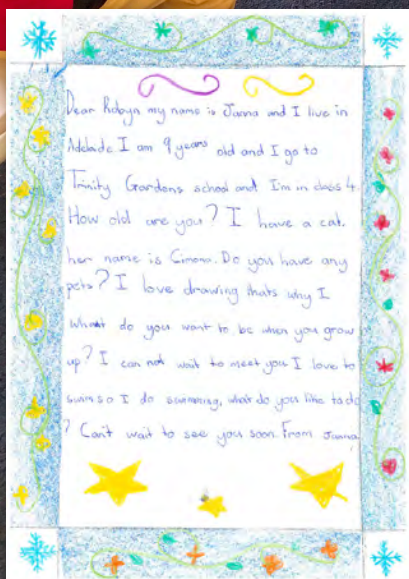 Dear Robyn my name is Janna and I live in
Adelaide I am 9 years old and I go to
Trinity Gardens school and I'm in class 4.
How old are you? I have a cat.
her name is Cimona. Do you have any
pets? I love drawing thats why I
what do you want to be when you grow
up? I can not wait to meet you I love to
swim so I do swimming, what do you like to do
? Can't wait to see you soon. From Janna